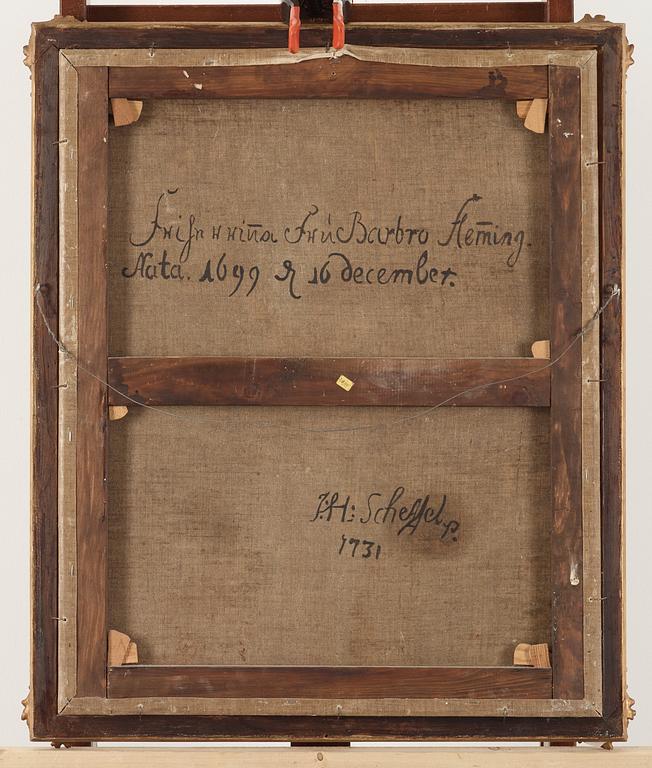 Friherriña Fru Barbro Flem̄ing.
Nata. 1699 16 december.
J:H: Scheffel p.
1731